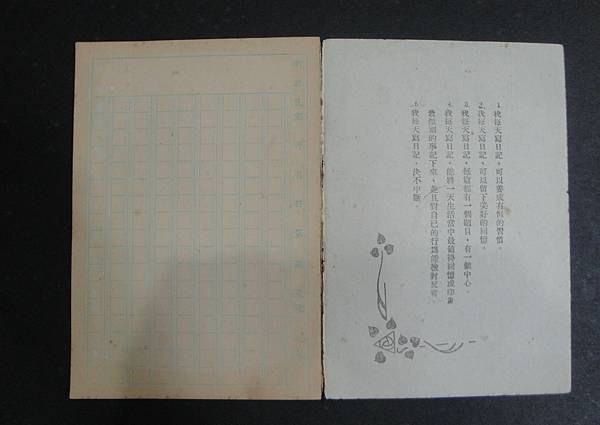 1.我每天寫日記，可以養成有恒的習慣。
2.我每天寫日記，可以留下美好的回憶。
3.我每天寫日記，每篇都有一個題目，有一個中心。
4.我每天寫日記，能將一天生活當中最值得回憶或印象
最深刻的事記下來，並且對自己的行為能檢討反省。
5.我每天寫日記，決不中斷。